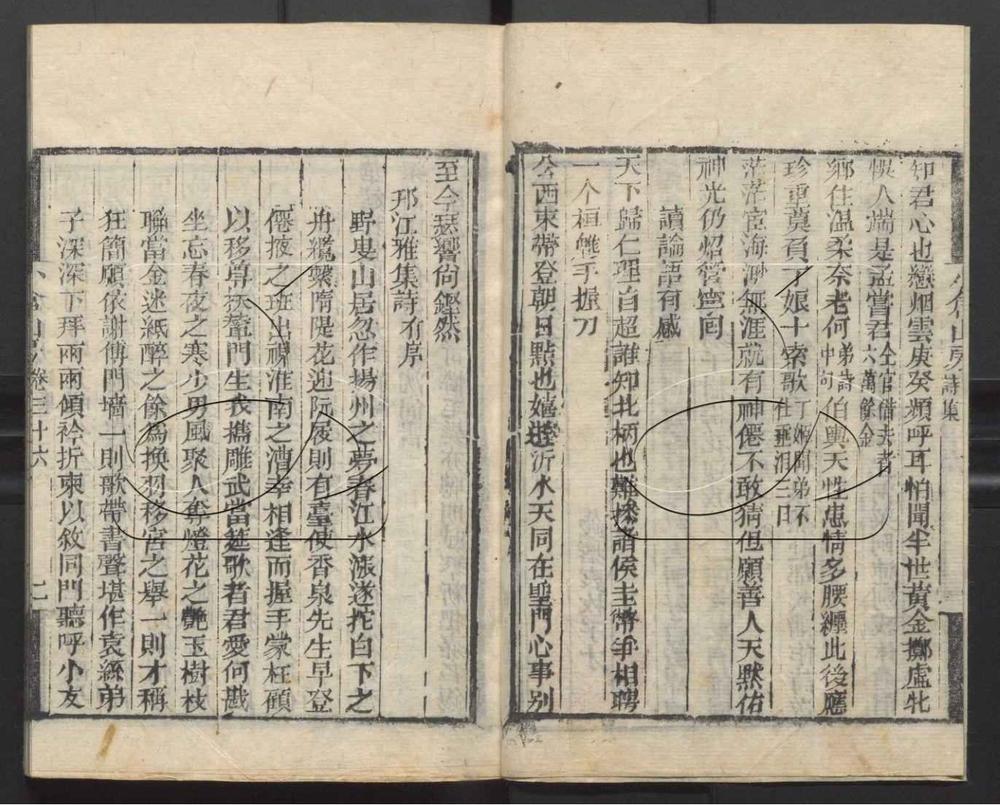 知君心也戀烟雲庚癸頻呼耳怕聞半世黃金擲虛牝
悞人端是孟嘗君全官借去者六萬餘金
鄉住溫柔奈老何弟詩中句伯輿天性患情多腰纏此後應
珍重莫負丁娘十索歌丁姬聞弟不
茫茫宦海渺無涯就有神僊不敢猜但願善人天默佑
神光仍炤管
讀論語有感
天下歸仁理自超誰知北柄也難搖諸侯圭幣爭相聘
一个桓魋手握刀
公西束帶登朝日點也嬉遊沂水天同在聖門心事別
小倉山房詩集
至今瑟響尚鏗然
邗江雅集詩有序
野叟山居忽作揚州之夢春江水漲遂拕白下之
舟纜繫隋隄花迎阮履則有臺使香泉先生早登
僊掖之班出視淮南之漕幸相逢而握手蒙枉顧
以移尊孫登門生我攜雕武當筵歌者君愛何戡
坐忘春夜之寒少男風聚人奪燈花之艷玉樹枝
聯當金迷紙醉之餘爲換羽移宮之舉一則才稱
狂簡願依謝傅門墻一則歌帶書聲堪作袁絲弟
子深深下拜兩兩傾衿折柬以敘同門聽呼小友
卷三十六